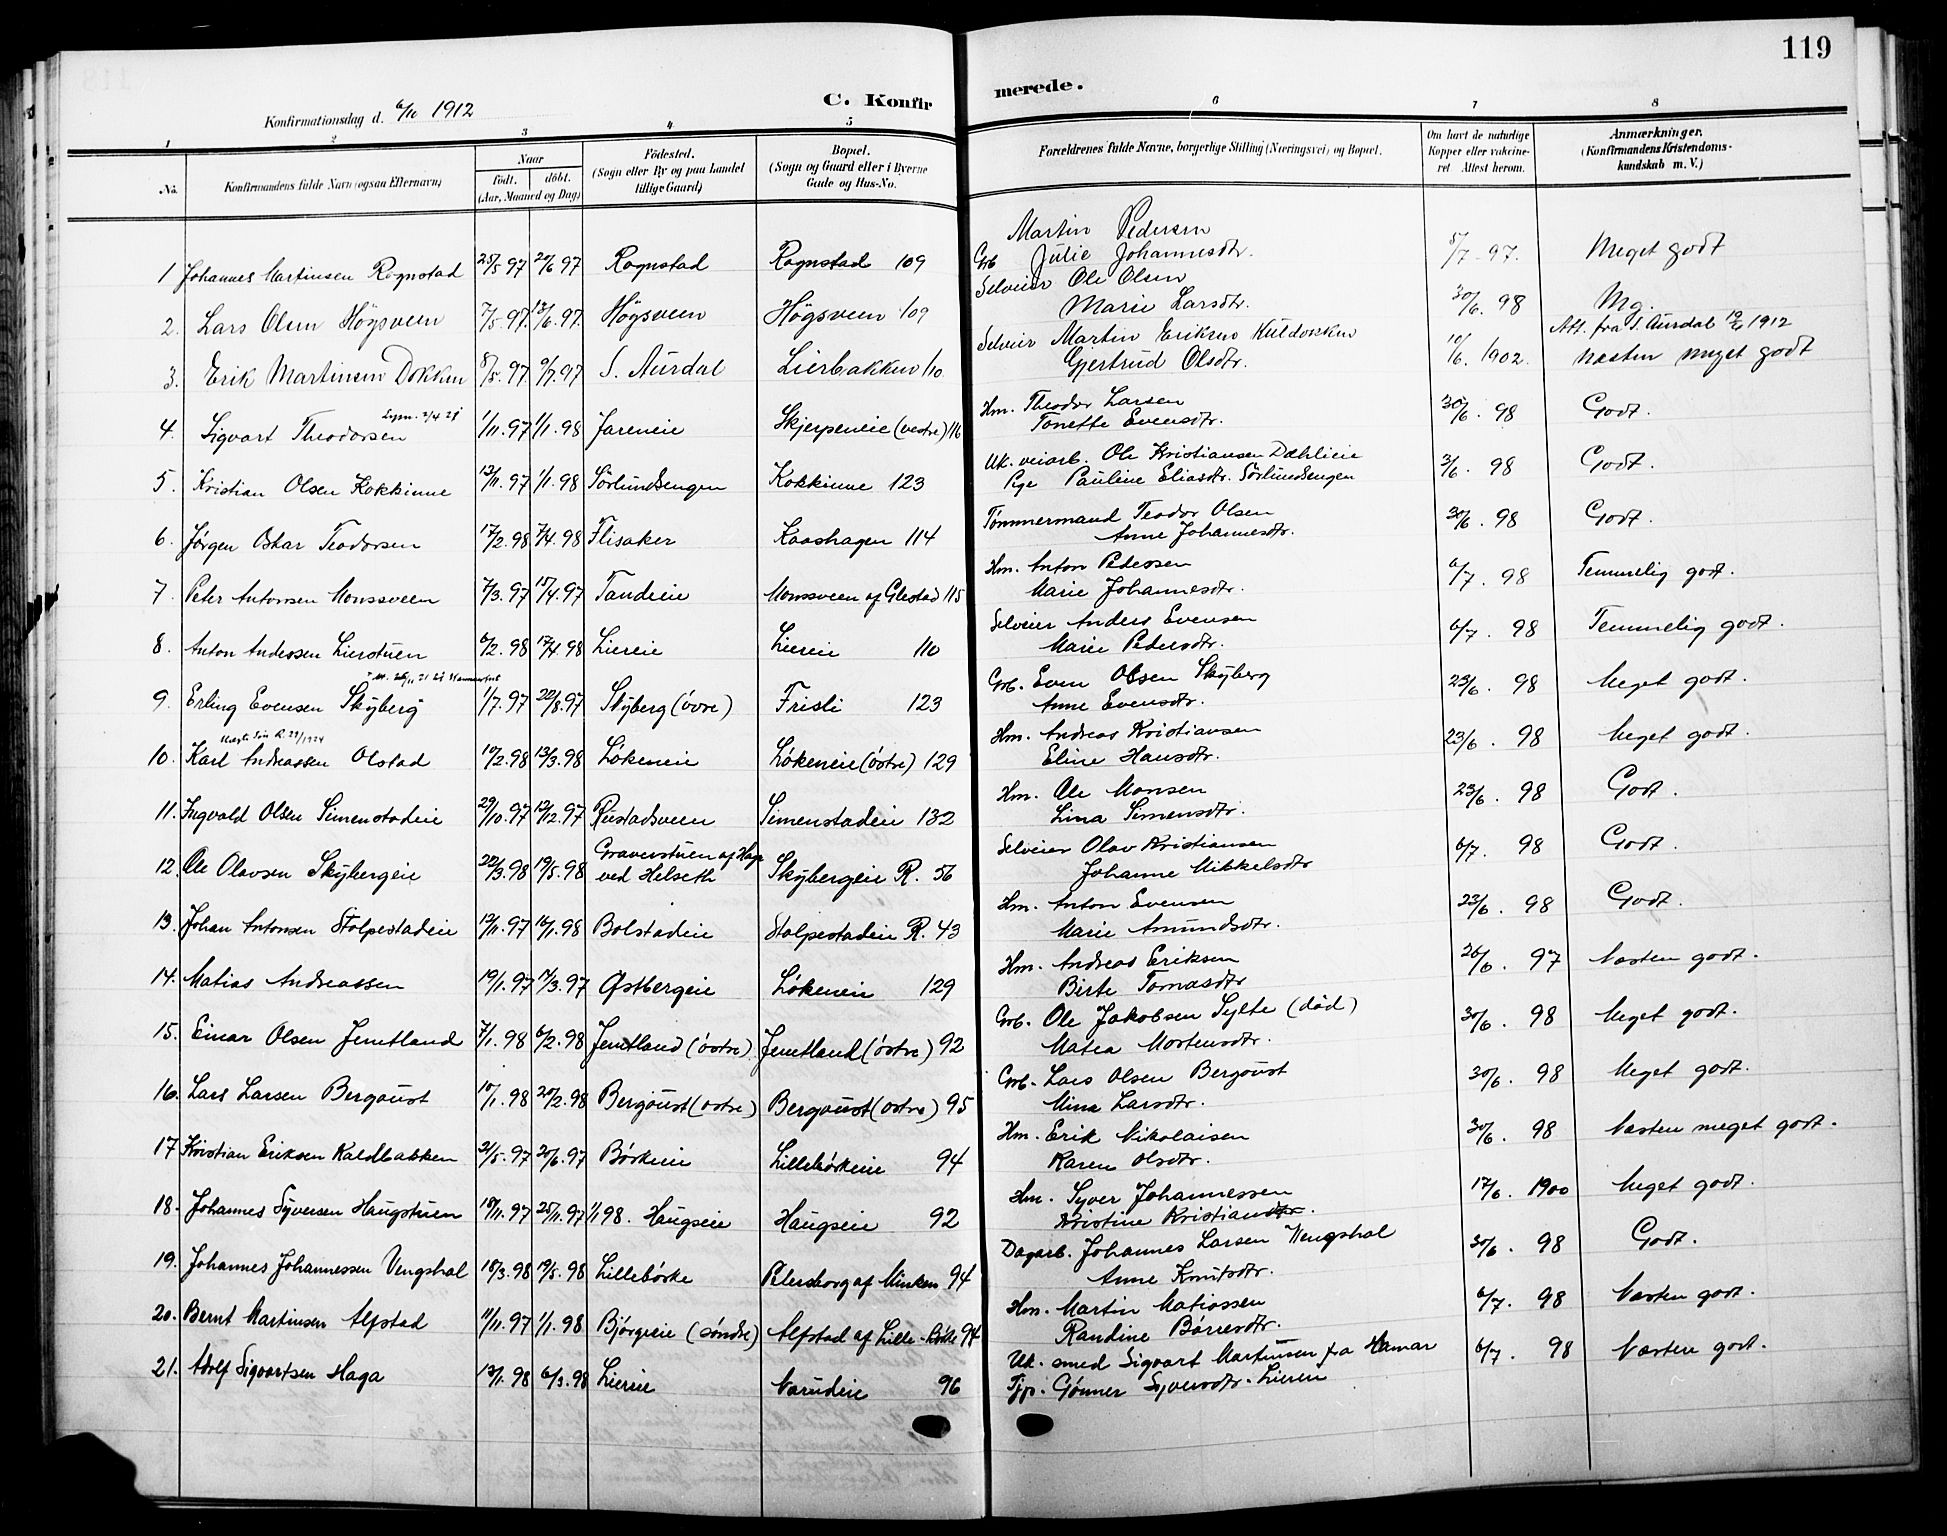 119
Konfirmationsdag d. 6/10 1912
C. Konfirmerede.
1 2 3 4 5 6 7 8
No.
Konfirmandens fulde Navn (ogsaa Efternavn)
Naar
födt. döbt.
(Aar, Maaned og Dag)
Födested.
(Sogn eller By og paa landet
tillige Gaard)
Bopæl.
(Sogn og Gaard eller i Byerne
Gade og Hus-No.
Forældrenes fulde Navne, borgerlige Stilling (Næringsvei) og Bopæl.
Om havt de naturlige
Kopper eller vakcine-
ret Attest herom.
Anmærkninger.
(Konfirmandens Kristendoms-
kundskab m. V.)
1 Johannes Martinsen Rognstad 25/5 97 27/6 97 Rognstad Rognstad 109 Martin Pedersen
Grb Julie Johannesdtr. 5/7 97. Meget godt
2. Lars Olsen Högsveen 7/5 97. 13/6 97. Högsveen Högsveen 109 Selveier Ole Olsen
Marie Larsdtr. 30/6. 98 Mg.
3. Erik Martinsen Dokken 8/5 97 9/7 97 S. Aurdal Lierbakken 110 Selveier Martin Eriksen Kuldokken
Gjertrud Olsdtr. 10/6. 1902. Att. fra S. Aurdal 19/9 1912
næsten meget godt
4. Sigvart Theodorsen 1/11 97 1/1 98 Jareneie Skjerpeneie (vestre) 116 Hm. Theodor Larsen
Tonette Evensdtr. 30/6. 98 Godt.
5. Kristian Olsen Kokkinne 13/11 97 1/1 98 Sörlundsengen Kokkinne 123 Uk. veiarb. Ole Kristiansen Dæhlieie
Pge Pauline Eliasdtr. Sörlundsengen 3/6. 98 Godt.
6. Jörgen Oskar Teodorsen 17/2. 98 7/4. 98 Flisaker Kaashagen 114 Tömmermand Teodor Olsen
Anne Johannesdtr. 30/6. 98 Godt.
7. Peter Antonsen Monssveen 7/3. 97 15/4. 97 Tandeie Monssveen af Glestad 115 Hm. Anton Pedersen
Marie Johannesdtr. 6/7. 98 Temmelig godt.
8. Anton Andersen Lierstuen 6/2. 98 17/4. 98 Liereie Liereie 110 Selveier Anders Evensen
Marie Pedersdtr. 6/7. 98 Temmelig godt.
9. Erling Evensen Skyberg 1/7. 97 22/8. 97 Skyberg (övre) Frisli 123 Grb. Even Olsen Skyberg
Anne Evensdtr. 23/6. 98 Meget godt.
10. Karl Andreassen Olstad 10/2. 98 13/3. 98 Lökeneie Lökeneie (östre) 129 Hm. Andreas Kristiansen
Eline Hansdtr. 23/6. 98 Meget godt.
11. Ingvald Olsen Simenstadeie 29/10. 97 12/12. 97 Rustadsveen Simenstadeie 132 Hm. Ole Monsen
Lina Simensdtr. 23/6. 98 Godt.
12. Ole Olavsen Skybergeie 22/3. 98 19/5. 98 Graverstuen af Hage
ved Helseth Skybergeie R. 56 Selveier Olav Kristiansen
Johanne Mikkelsdtr 6/7. 98 Godt.
13. Johan Antonsen Stolpestadeie 12/11. 97 16/1. 98 Bolstadeie Stolpestadeie R. 43 Hm. Anton Evensen
Marie Amundsdtr. 23/6. 98 Godt.
14. Matias Andreassen 19/1. 97 14/3. 97 Östbergeie Lökeneie 129 Hm. Andreas Eriksen
Birte Tomasdtr 26/6. 97 Næsten godt.
15. Einar Olsen Jemtland 7/1. 98 6/2. 98 Jemtland (östre) Jemtland (östre) 92 Grb. Ole Jakobsen Sylte (död)
Matea Mortensdtr. 30/6. 98 Meget godt.
16. Lars Larsen Bergoust 10/1. 98 20/2. 98 Bergoust (östre) Bergoust (östre) 95 Grb. Lars Olsen Bergoust
Mina Larsdtr. 30/6. 98 Meget godt.
17 Kristian Eriksen Kaldbakken 21/5. 97 20/6. 97 Börkeie Lillebörkeie 94 Hm. Erik Nikolaisen
Karen Olsdtr. 30/6. 98 Næsten meget godt.
18. Johannes Syversen Haugstuen 18/11. 97 25/11. 97 1/1 98. Haugseie Haugseie 92 Hm. Syver Johannessen
Kristine Kristiansdtr. 17/6. 1900 Meget godt.
19. Johannes Johannessen Vengshol 18/3. 98 19/5. 98 Lillebörke Petersborg af Minken 94 Dagarb. Johannes Larsen Vengshol
Anne Knutsdtr. 30/6. 98 Godt.
20. Bernt Martinsen Alfstad 11/11. 97 1/1. 98 Bjørgeeie (søndre) Alfstad af Lille-Börke 94 Hm. Martin Matiassen
Randine Börresdtr. 6/7. 98 Næsten godt.
21. Adolf Sigvartsen Haga 13/1. 98 6/3. 98 Liereie Narudeie 96 Uk. smed Sigvart Martinsen fra Hamar
Tjp. Gönner Syversdtr. Lieren 6/7. 98 Næsten godt.